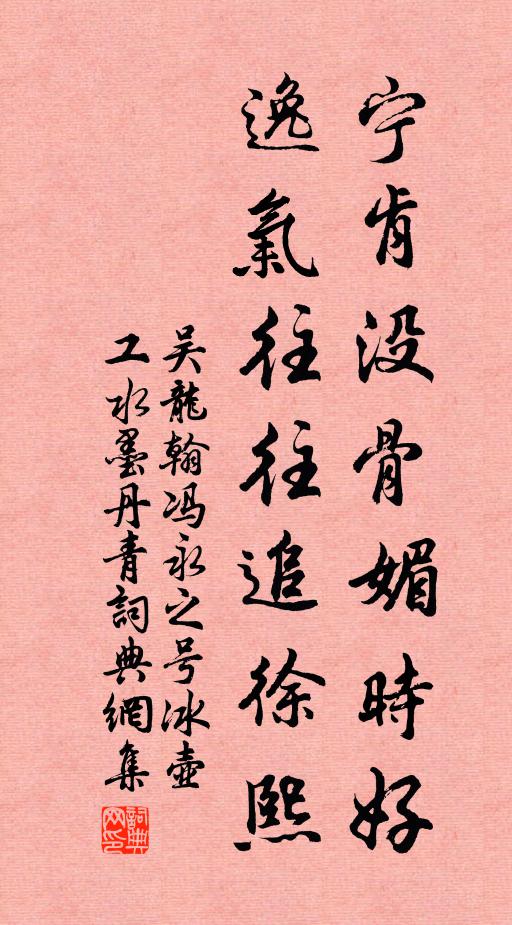 宁肯没骨媚時好
逸氣往往追徐熙
吴龍翰冯永之号冰壶
工水墨丹青詞典網集
詞典网印